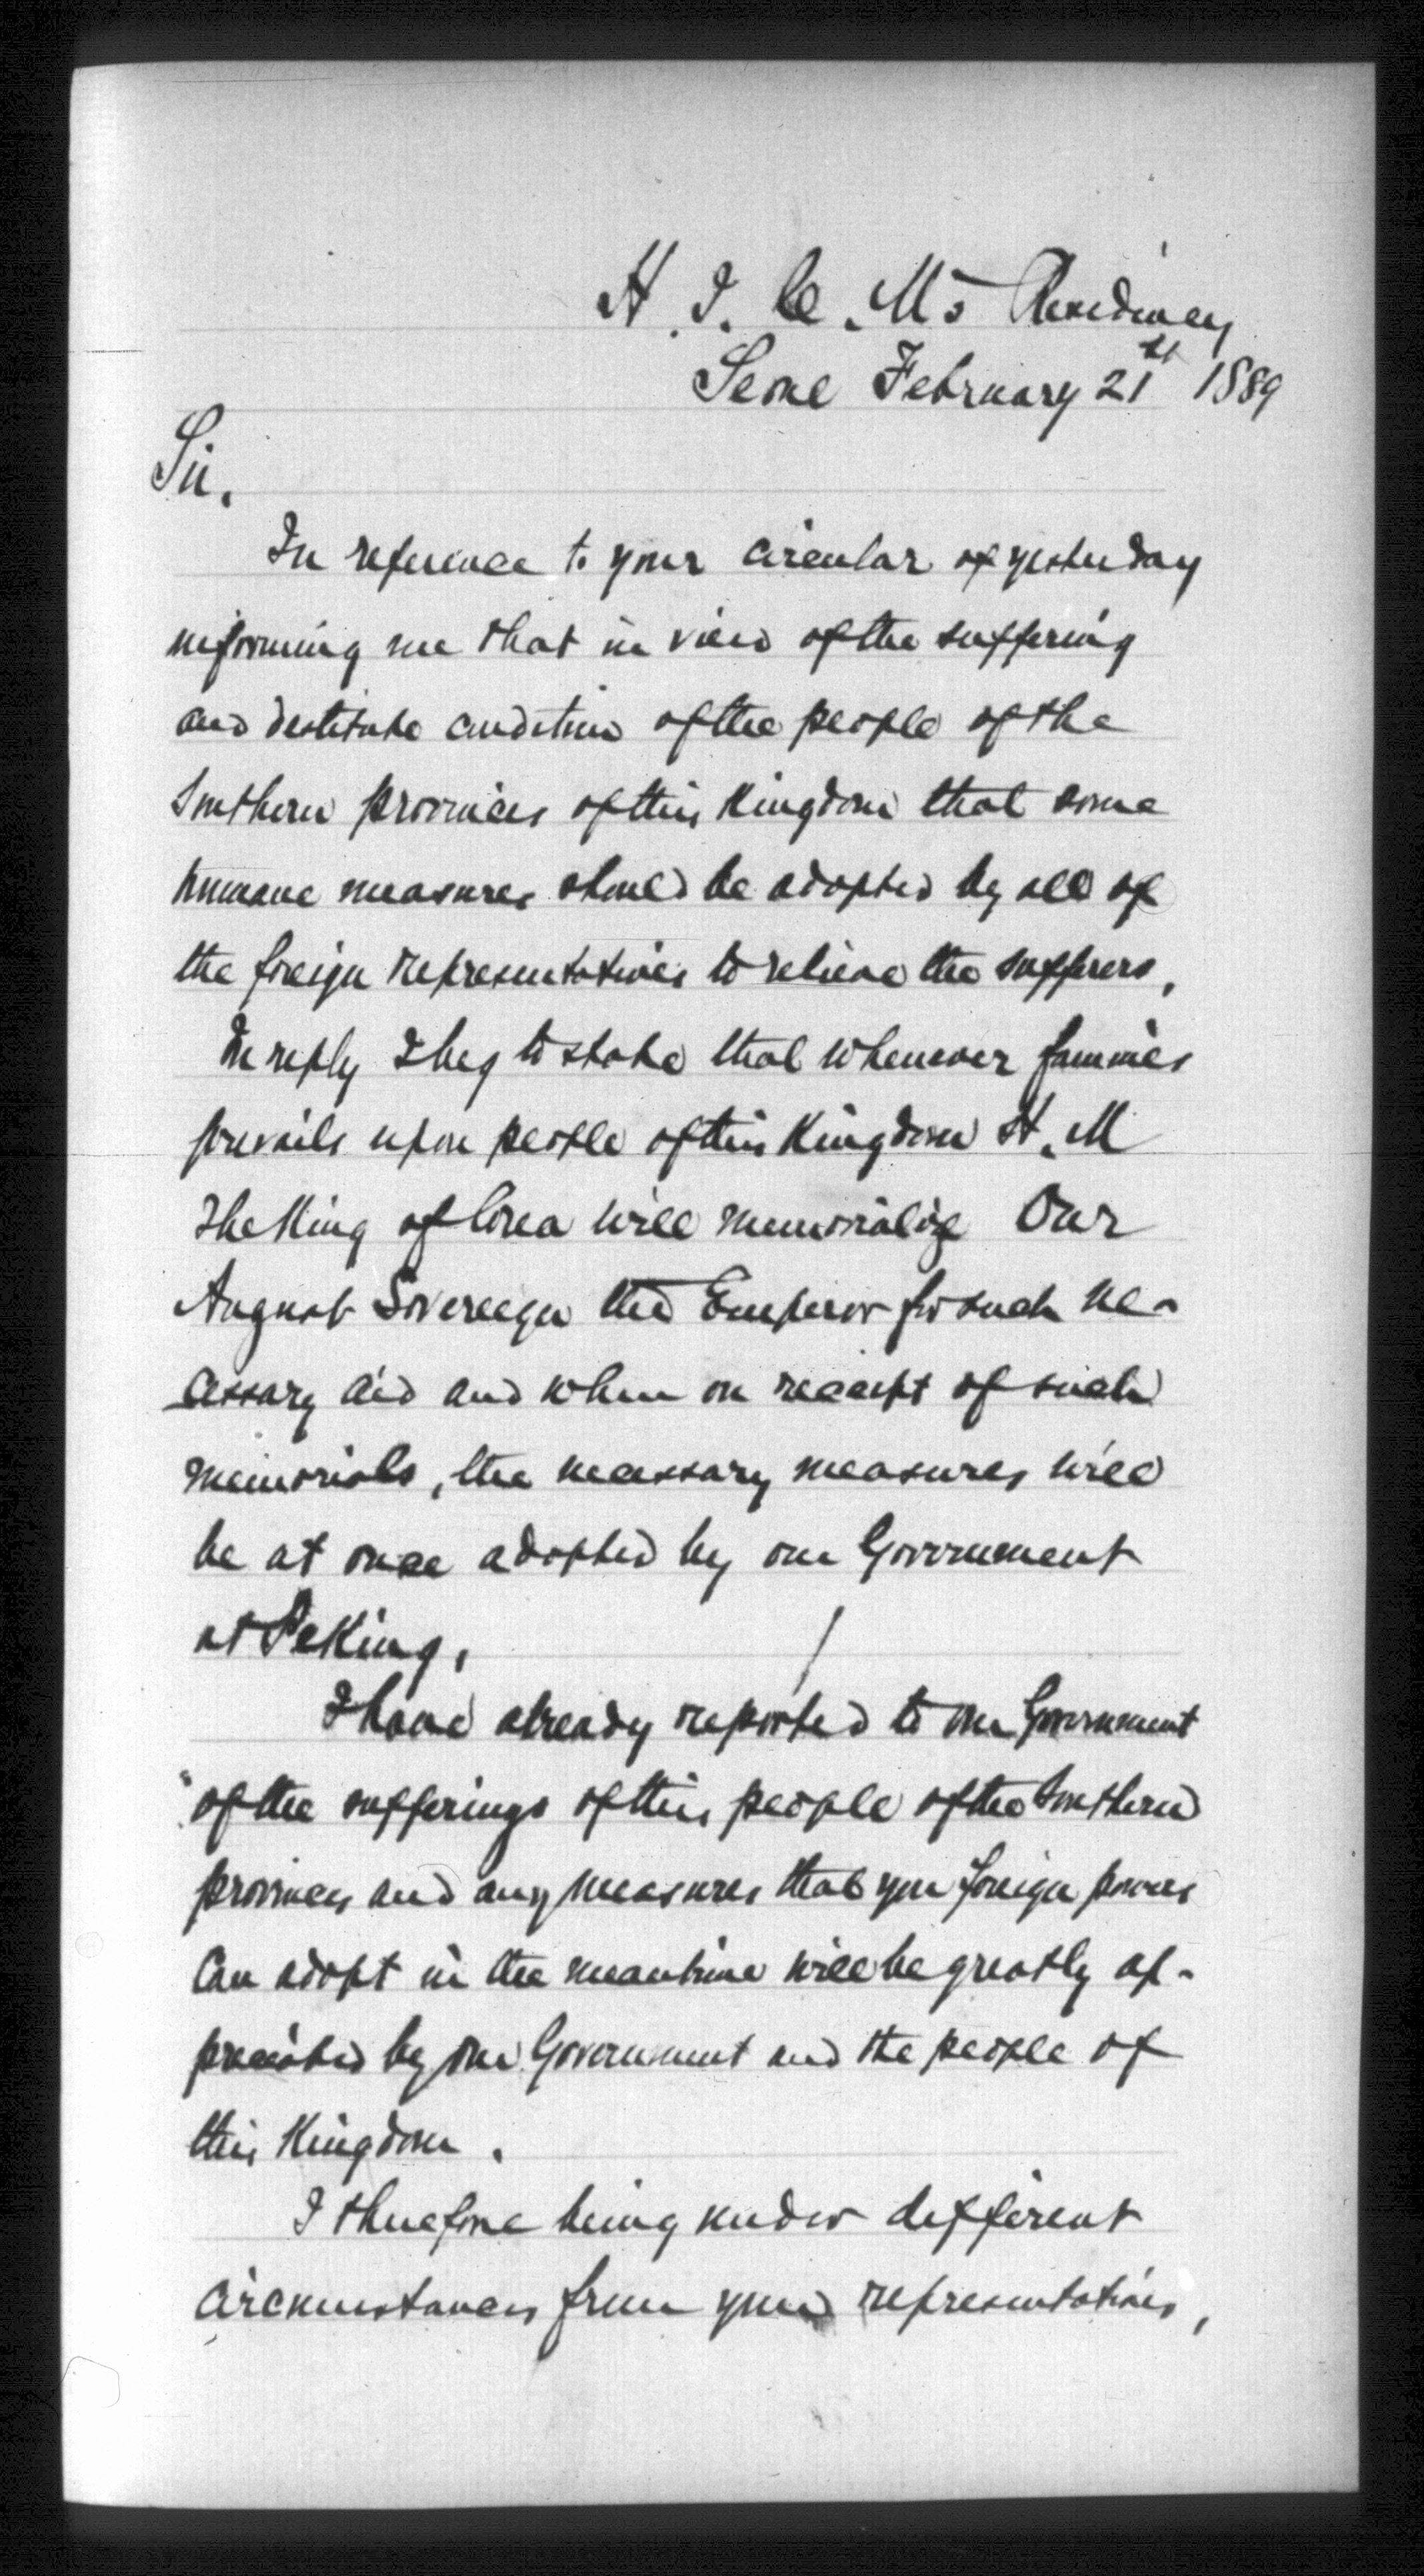 H. I. C. M's Residency
Seoul February 21st 1889
Sir.
In reference to your circular of yesterday
informing me that in view of the suffering
and destitute condition of the people of the
Southern provinces of this Kingdom that some
humane measures should be adopted by all of
the foreign representatives to relieve the sufferers,
In reply I beg to state that whenever famines
prevails upon people of this Kingdom H. M
the King of Corea will memorialize Our
August Sovereign the Emperor for such ne-
cessary aid and when on receipt of such
memorials, the necessary measures will
be at once adopted by our Government
at Peking.
I have already reported to our Government
of the sufferings of this people of the Southern
provinces and any measures that you foreign powers
can adopt in the meantime will be greatly ap-
preciated by our Government and the people of
this Kingdom.
I therefore being under different
circumstances from your representatives,